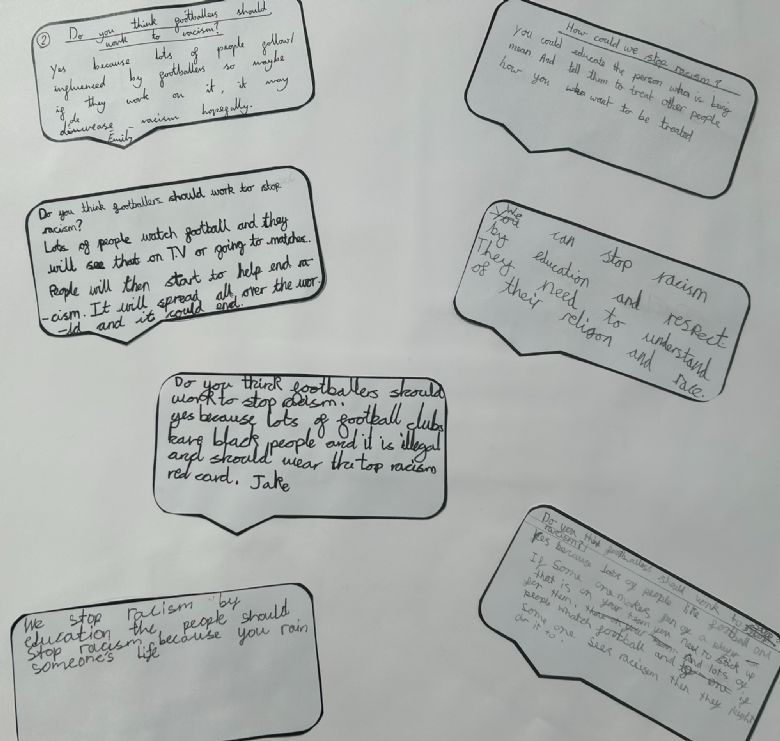 ② Do you think footballers should
work to racism?
Yes because lots of people follow/
influenced by footballers so maybe
if they work on it, it may
de
dincrease racism hopefully.
Emily
How could we stop racism?
You could educate the person who is being
mean. And tell them to treat other people
how you want to be treated
Do you think footballers should work to stop
racism?
Lots of people watch football and they
will see that on TV or going to matches.
People will then start to help end ra-
-cism. It will spread all over the wor-
-ld and it could end.
We can stop racism
by education and respect
They need to understand
of their religon and race.
Do you think footballers should
work to stop racism.
yes because lots of football clubs
have black people and it is illegal
and should wear the top racism
red card. Jake
We stop racism by
education the people should
stop racism because you rain
someone's life
Do you think footballers should work to
racism?
Yes because lots of people like football and
If some one makes fun of a player
that is on your team you need to stick up
for them. And lots of
people whatch football and if
some one sees racism then they might
do it to.